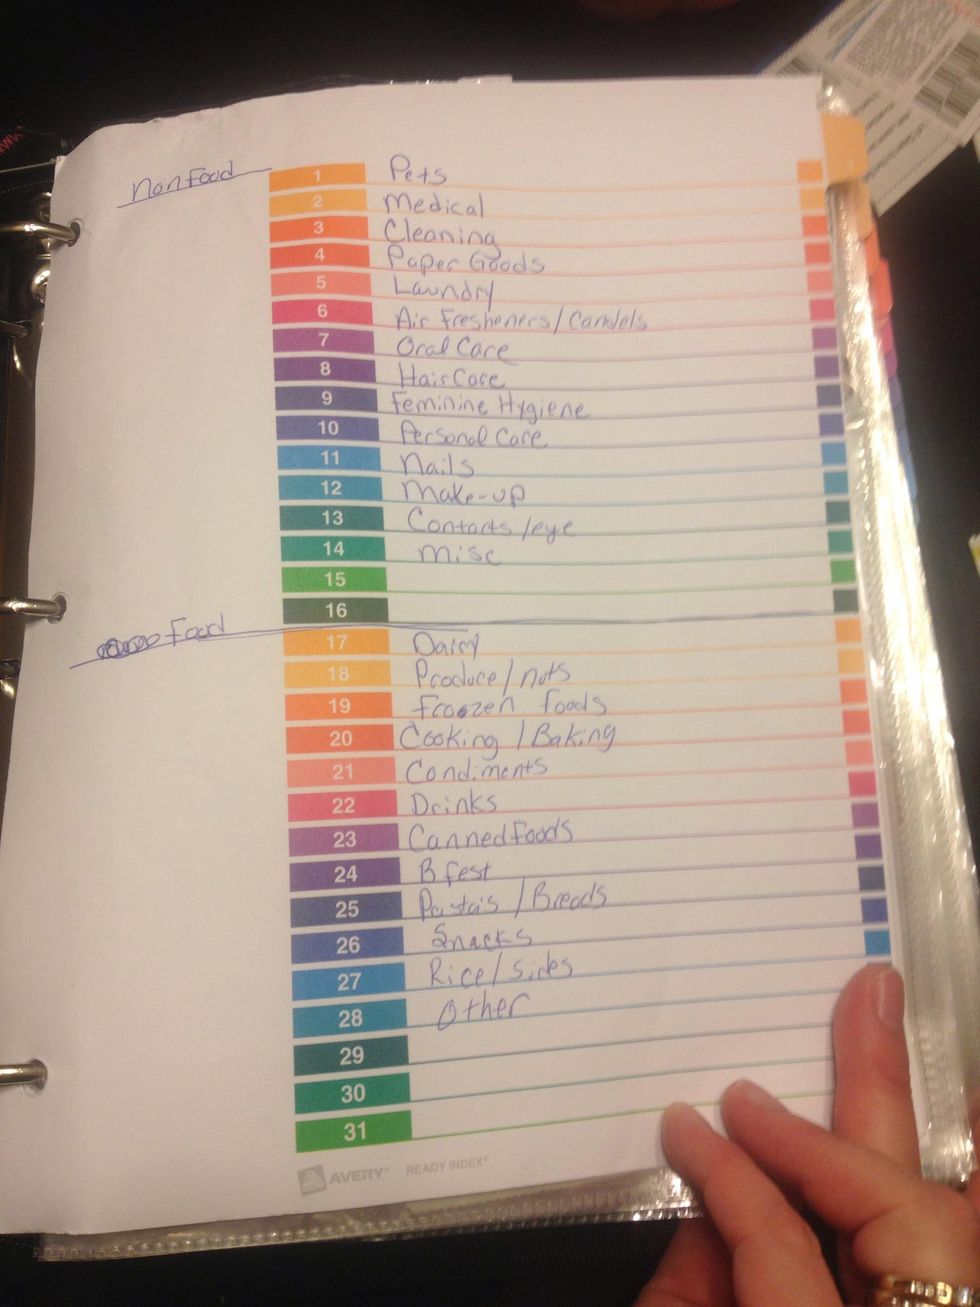 Nonfood
1 Pets
2 Medical
3 Cleaning
4 Paper Goods
5 Laundry
6 Air Fresheners/Candels
7 Oral Care
8 Hair Care
9 Feminine Hygiene
10 Personal Care
11 Nails
12 Make-up
13 Contacts/eye
14 Misc
15
16
Food
17 Dairy
18 Produce/nuts
19 Froozen foods
20 Cooking/Baking
21 Condiments
22 Drinks
23 Canned Foods
24 Bfest
25 Pasta's/Breads
26 Snacks
27 Rice/sides
28 Other
29
30
31
AVERY® READY INDEX®